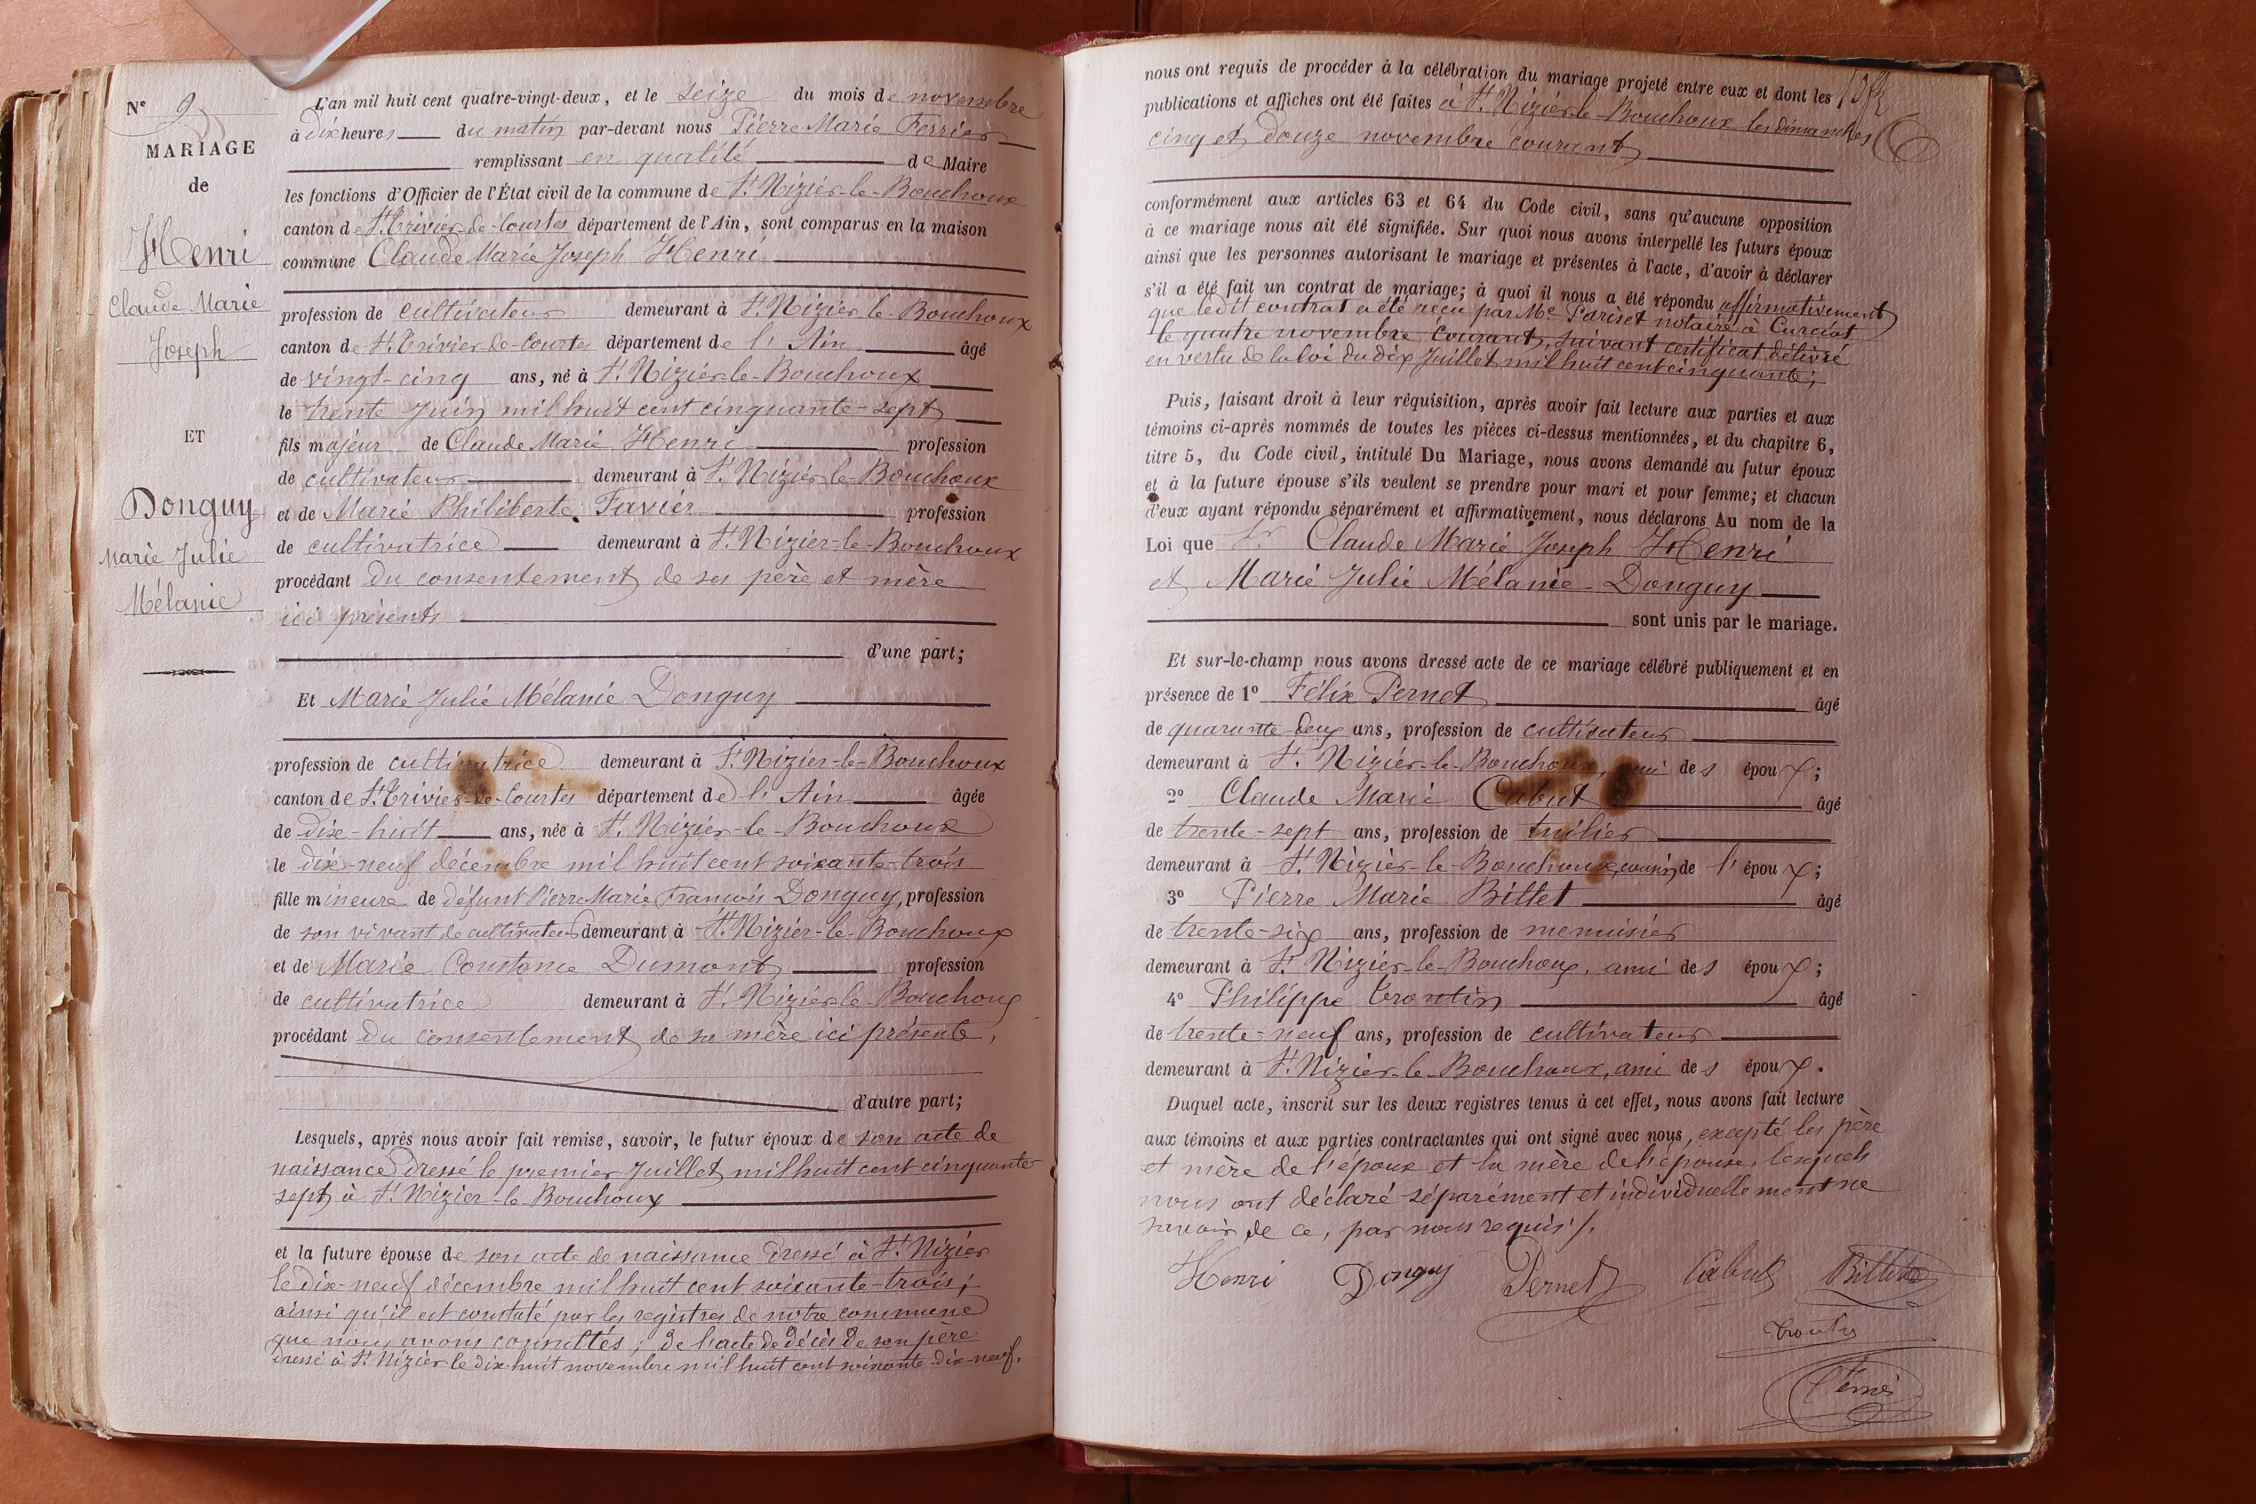 N° 9
MARIAGE
de
Henri
Claude Marie
Joseph
ET
Donguy
Marie Julie
Mélanie
L'an mil huit cent quatre-vingt-deux, et le seize du mois de novembre
à dix heures du matin par-devant nous Pierre Marie Ferrier
remplissant en qualité de Maire
les fonctions d'Officier de l'État civil de la commune de St Nizier-le-Bouchoux
canton de St Trivier-de-Courtes département de l'Ain, sont comparus en la maison
commune Claude Marie Joseph Henri
profession de cultivateur demeurant à St Nizier-le-Bouchoux
canton de St Trivier-de-Courtes département de l'Ain âgé
de vingt-cinq ans, né à St Nizier-le-Bouchoux
le trente Juin mil huit cent cinquante-sept
fils majeur de Claude Marie Henri profession
de cultivateur demeurant à St Nizier-le-Bouchoux
et de Marie Philiberte Favier profession
de cultivatrice demeurant à St Nizier-le-Bouchoux
procédant du consentement de ses père et mère
ici présents
d'une part;
Et Marie Julie Mélanie Donguy
profession de cultivatrice demeurant à St Nizier-le-Bouchoux
canton de St Trivier-de-Courtes département de l'Ain âgée
de dix-huit ans, née à St Nizier-le-Bouchoux
le dix-neuf décembre mil huit cent soixante-trois
fille mineure de défunt Pierre Marie François Donguy, profession
de son vivant de cultivateur demeurant à St Nizier-le-Bouchoux
et de Marie Constance Dumont profession
de cultivatrice demeurant à St Nizier-le-Bouchoux
procédant du consentement de sa mère ici présente,
d'autre part;
Lesquels, après nous avoir fait remise, savoir, le futur époux de son acte de
naissance dressé le premier Juillet mil huit cent cinquante
sept à St Nizier-le-Bouchoux
et la future épouse de son acte de naissance dressé à St Nizier
le dix-neuf décembre mil huit cent soixante-trois;
ainsi qu'il est constaté par les registres de notre commune
que nous avons consultés; de l'acte de décès de son père
dressé à St Nizier le dix-huit novembre mil huit cent soixante-dix-neuf.
nous ont requis de procéder à la célébration du mariage projeté entre eux et dont les
publications et affiches ont été faites à St Nizier-le-Bouchoux les dimanches
cinq et douze novembre courant
conformément aux articles 63 et 64 du Code civil, sans qu'aucune opposition
à ce mariage nous ait été signifiée. Sur quoi nous avons interpellé les futurs époux
ainsi que les personnes autorisant le mariage et présentes à l'acte, d'avoir à déclarer
s'il a été fait un contrat de mariage; à quoi il nous a été répondu affirmativement
que ledit contrat a été reçu par Me Pariset notaire à Curciat
le quatre novembre courant, suivant certificat délivré
en vertu de la loi du dix Juillet mil huit cent cinquante;
Puis, faisant droit à leur réquisition, après avoir fait lecture aux parties et aux
témoins ci-après nommés de toutes les pièces ci-dessus mentionnées, et du chapitre 6,
titre 5, du Code civil, intitulé Du Mariage, nous avons demandé au futur époux
et à la future épouse s'ils veulent se prendre pour mari et pour femme; et chacun
d'eux ayant répondu séparément et affirmativement, nous déclarons Au nom de la
Loi que Claude Marie Joseph Henri
et Marie Julie Mélanie Donguy
sont unis par le mariage.
Et sur-le-champ nous avons dressé acte de ce mariage célébré publiquement et en
présence de 1° Félix Pernet âgé
de quarante-deux ans, profession de cultivateur
demeurant à St Nizier-le-Bouchoux, ami des époux;
2° Claude Marie Cabut âgé
de trente-sept ans, profession de tuilier
demeurant à St Nizier-le-Bouchoux, cousin de l'époux;
3° Pierre Marie Billet âgé
de trente-six ans, profession de menuisier
demeurant à St Nizier-le-Bouchoux, ami des époux;
4° Philippe Trontin âgé
de trente-neuf ans, profession de cultivateur
demeurant à St Nizier-le-Bouchoux, ami des époux.
Duquel acte, inscrit sur les deux registres tenus à cet effet, nous avons fait lecture
aux témoins et aux parties contractantes qui ont signé avec nous, excepté les père
et mère de l'époux et la mère de l'épouse, lesquels
nous ont déclaré séparément et individuellement ne
savoir de ce, par nous requis /.
Henri Donguy Pernet Cabut Billet